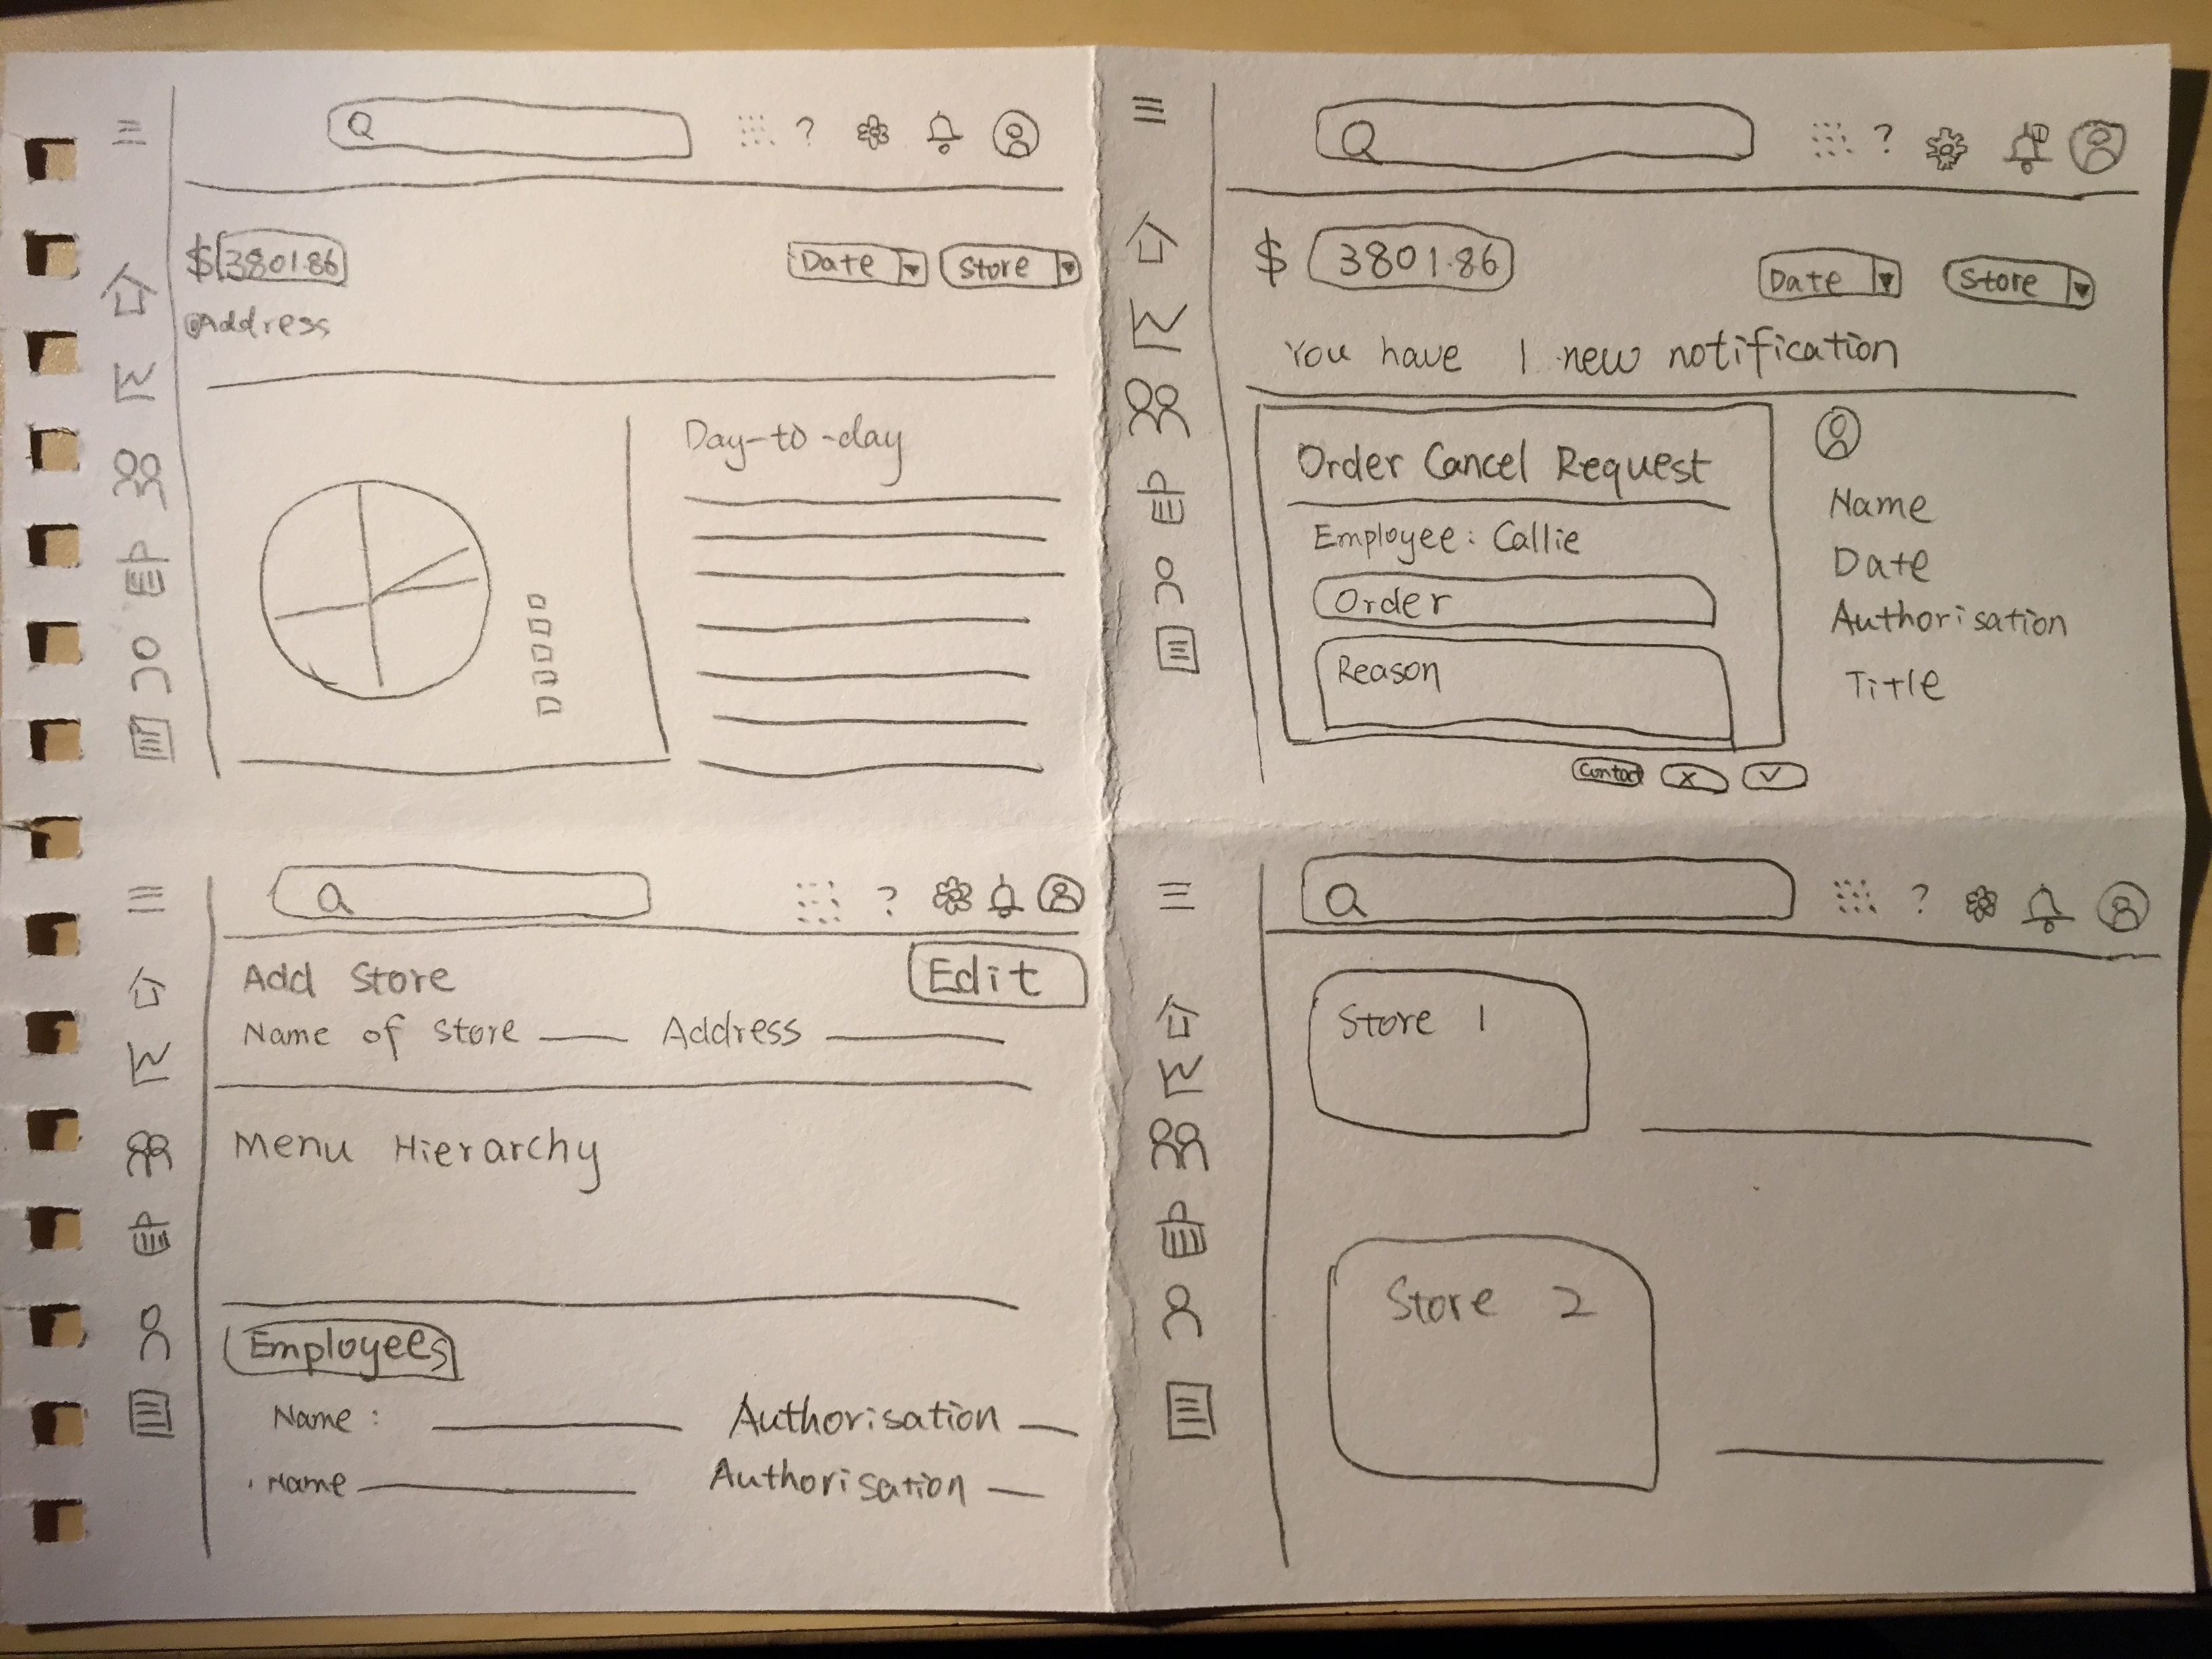 ?
$ 3801.86
Date Store
@Address
Day-to-day
?
$ 3801.86
Date Store
You have 1 new notification
Order Cancel Request
Employee: Callie
Order
Reason
Name
Date
Authorisation
Title
Contact X
?
Add Store Edit
Name of store Address
Menu Hierarchy
Employees
Name : Authorisation
Name Authorisation
?
Store 1
Store 2